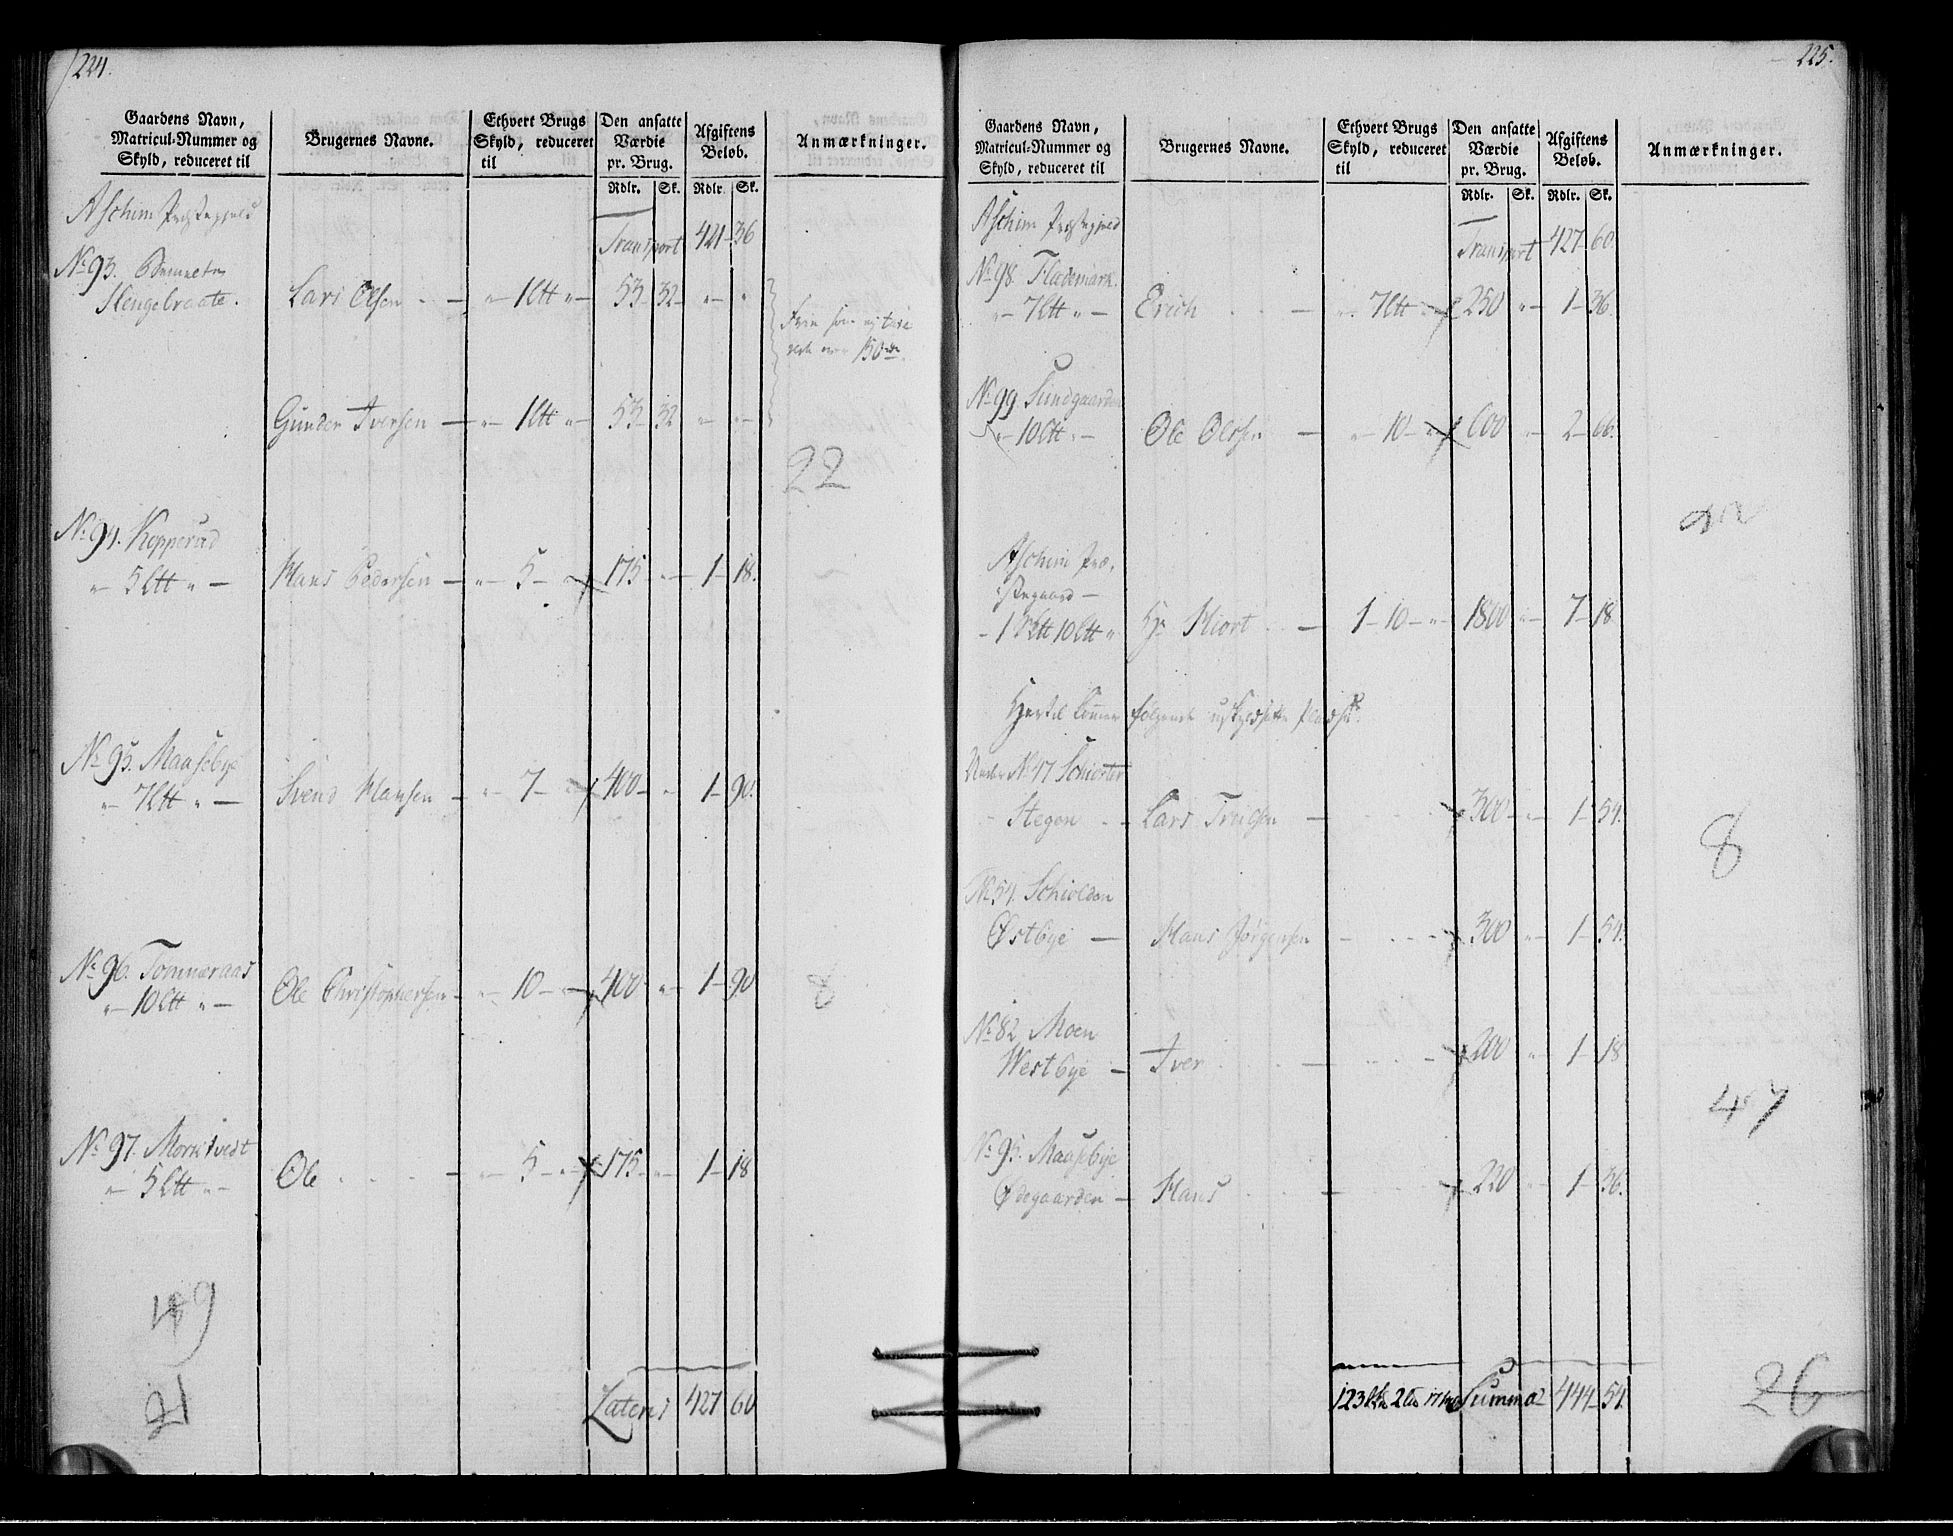 224.
Gaardens Navn,
Matricul-Nummer og
Skyld, reduceret til
Brugernes Navne.
Ethvert Brugs
Skyld, reduceret
til
Den ansatte
Værdie
pr. Brug.
Rdlr. Sk.
Afgiftens
Beløb.
Rdlr. Sk.
Anmærkninger.
Aschim
Transport 421 - 36
No 93.
Slengebraate. Lars Olsen - " 1 Ltt " 53 32 " "
150
Gunder Iversen - " 1 Ltt " 53 32 " "
22
No 94. Kopperud
" 5 Ltt " Hans Pedersen - " 5 - " 175 " 1 - 18.
No 95. Maasebye
" 7 Ltt " Svend Hansen - " 7 - " 400 " 1 - 90.
No 96. Tommeraas
" 10 Ltt " Ole Christophersen - " 10 - " 400 " 1 - 90
8
No 97. Morktvedt
" 5 Ltt " Ole - " 5 - " 175 " 1 - 18
21
Laters 427 60
225.
Gaardens Navn,
Matricul-Nummer og
Skyld, reduceret til
Brugernes Navne.
Ethvert Brugs
Skyld, reduceret
til
Den ansatte
Værdie
pr. Brug.
Rdlr. Sk.
Afgiftens
Beløb.
Rdlr. Sk.
Anmærkninger.
Aschim
Transport 427 - 60
No 98. Flademark.
" 7 Ltt " Erich - " 7 Ltt " 250 " 1 - 36.
No 99. Sundgaarden
" 10 Ltt " Ole Olssen - " 10 - " 600 " 2 - 66.
22
Aschim Præ-
stegaard -
1 10 Ltt " Hr Hiort - 1 - 10 - " 1800 " 7 - 18
Hertil kommer følgende uskyldsatte Pladse:
Under No 47 Schiorter
Stegen Lars Truelsen - 300 " 1 - 54.
8
No 54. Schiolden
Østbye - Hans Jørgensen - 300 " 1 - 54.
No 82 Moen
Westbye - Iver - 200 " 1 - 18
47
No 95. Maasebye
Ødegaarden - Hans - 220 " 1 - 36.
123 Summa 444 - 54.
26